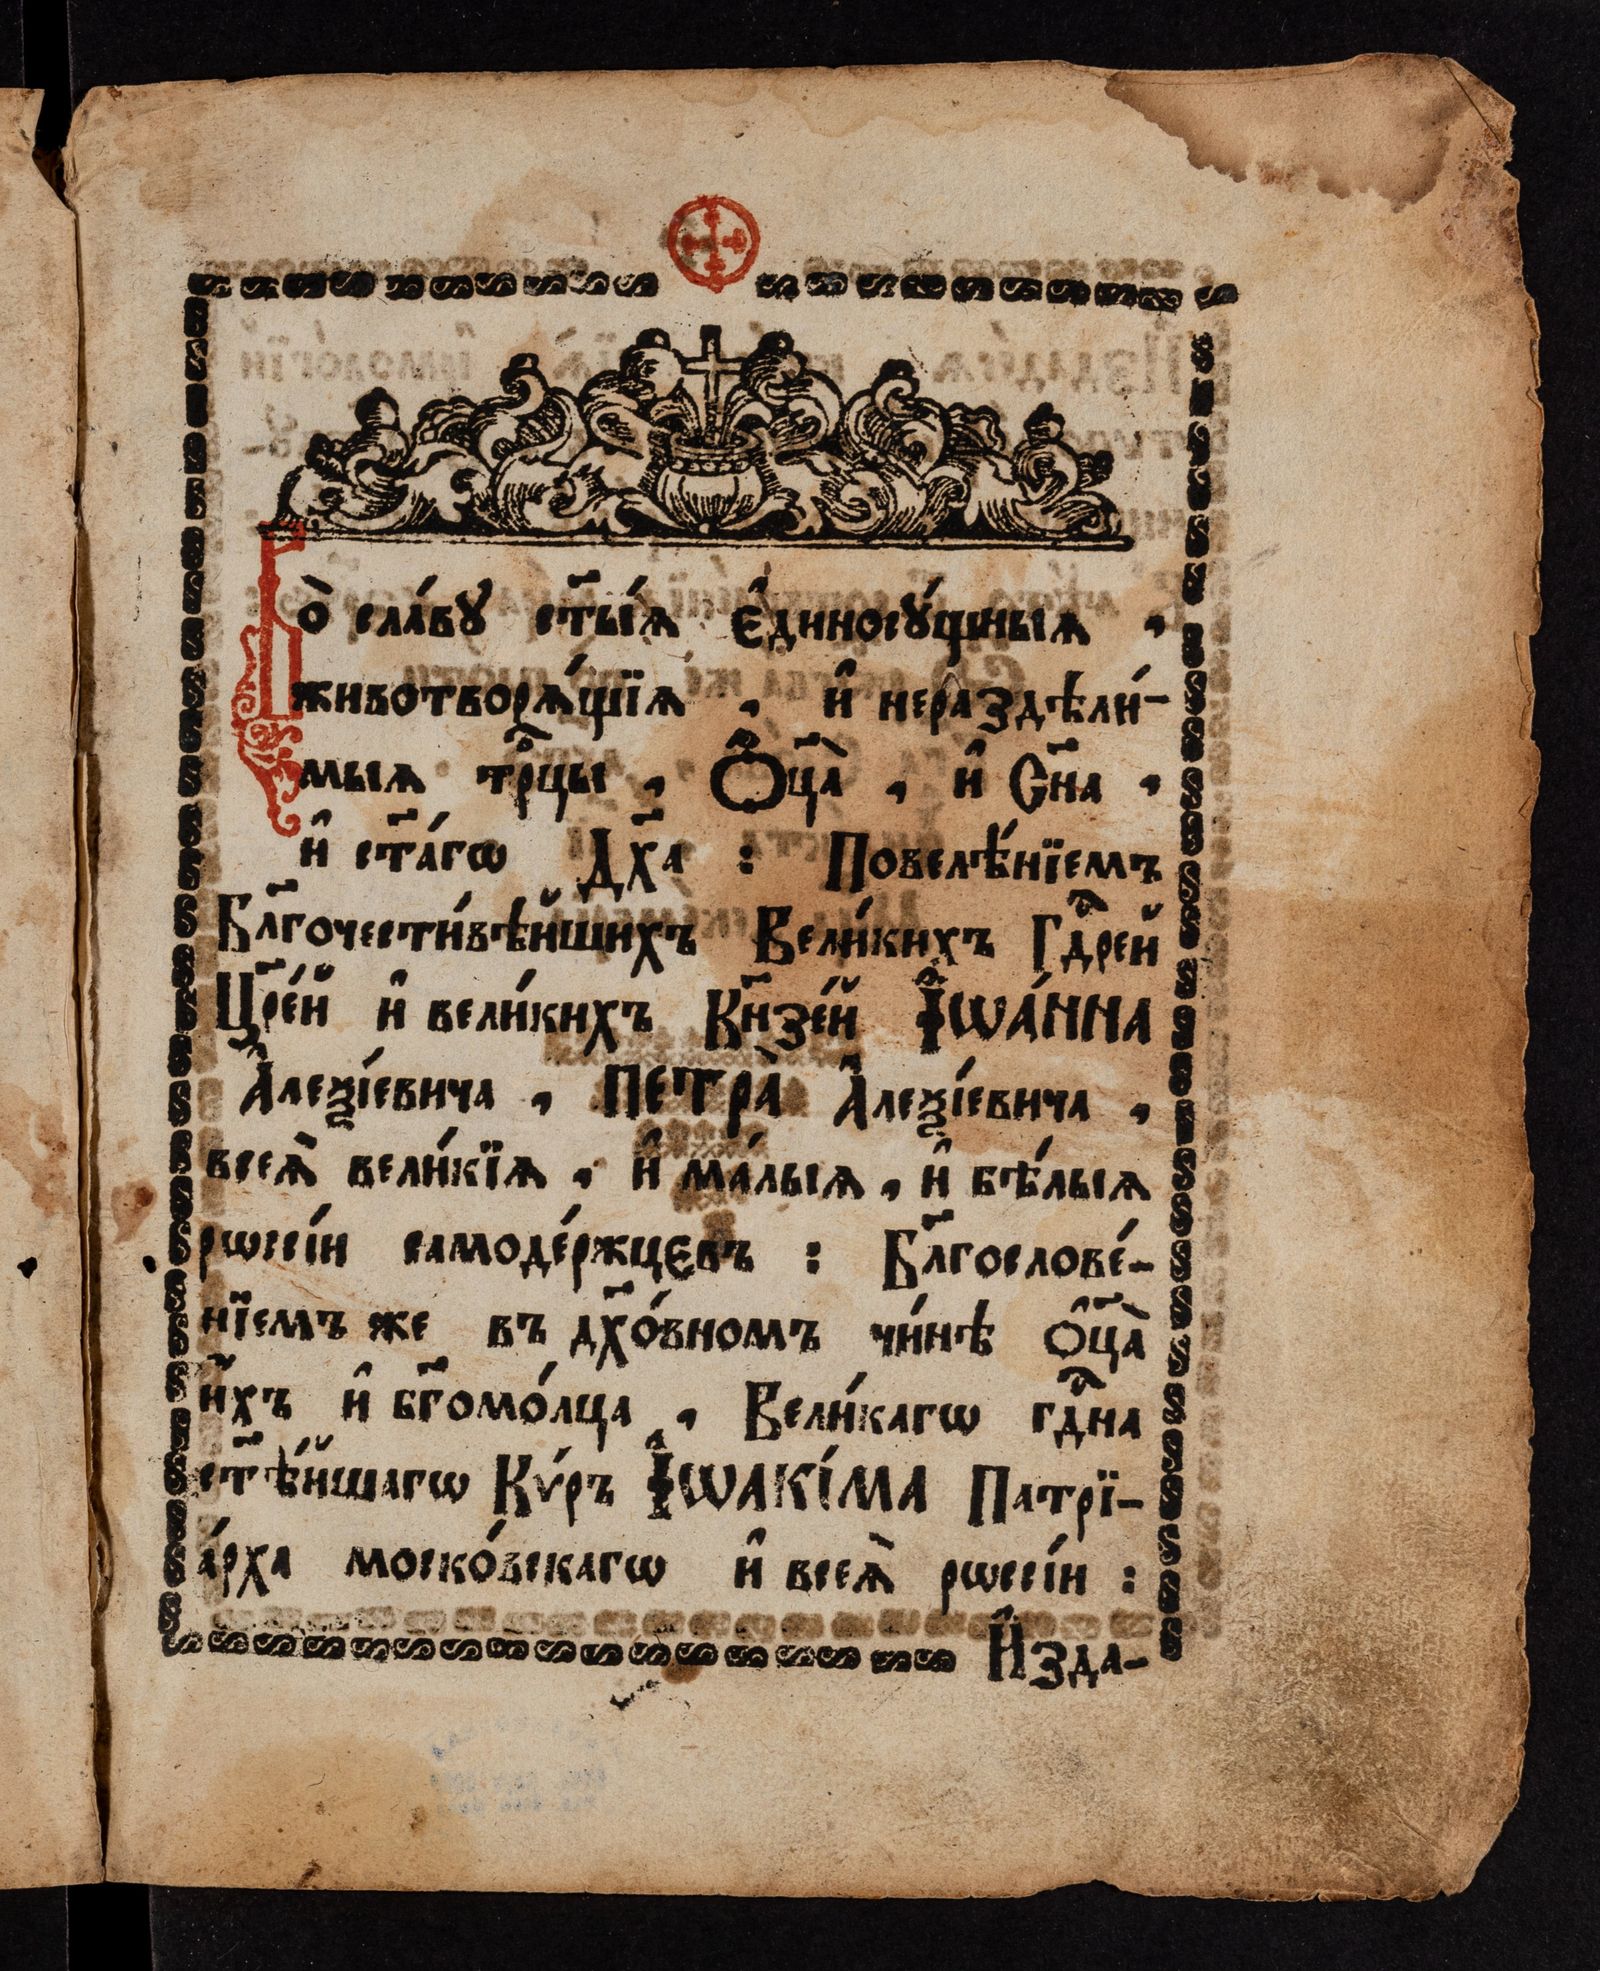 Во̀ сла́вꙋ ст҃ы́ѧ є҆диносꙋ́щныѧ ,
животворѧ́щїѧ , и҆ нераздѣли́-
мыѧ трⷪ҇цы , Ѻ҆ц҃а̀ , и҆ Сн҃а ,
и҆ ст҃а́гѡ Дх҃а : Повелѣ́нїемъ
Бл҃гочести́вѣйшихъ Вели́кихъ Гдⷭ҇рей
Цр҃е́й и҆ вели́кихъ Кн҃зе́й І҆ѠА́ННА
А҆леѯі́евича , ПЕТРА̀ А҆леѯі́евича ,
всеѧ̀ вели́кїѧ , и҆ ма́лыѧ , и҆ бѣ́лыѧ
рѡссі́и самоде́ржцєвъ : Бл҃гослове́-
нїемъ же въ дх҃о́вномъ чи́нѣ ѻ҆ц҃а̀
и҆́хъ и҆ бг҃омо́лца , Вели́кагѡ гдⷭ҇на
ст҃ѣ́йшагѡ Кѵ́ръ І҆ѠАКІ́МА Патрї-
а́рха моско́вскагѡ и҆ всеѧ̀ рѡссі́и :
И҆зда-